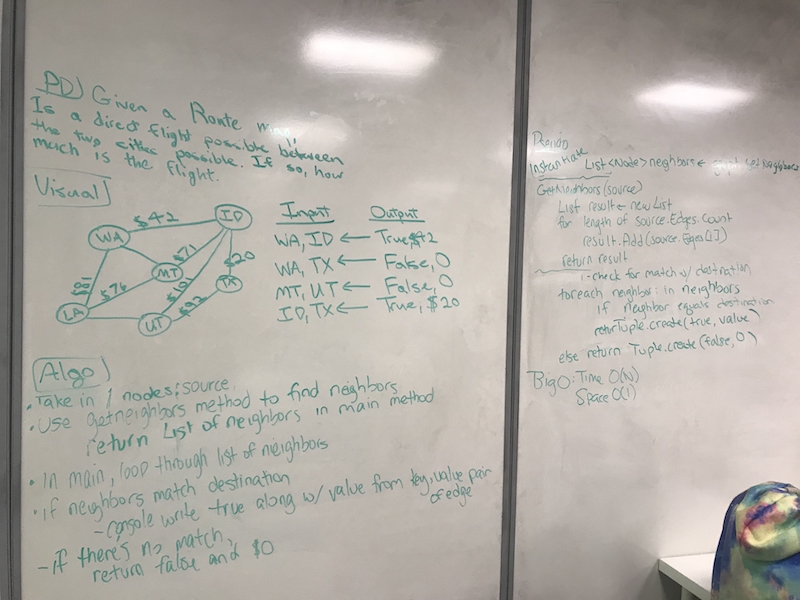 PD) Given a Route map,
Is a direct flight possible between
the two cities possible. If so, how
much is the flight.
Visual
$42
WA
ID
$71
MT
$20
$81
$74
$19
TX
LA
$92
UT
Input Output
WA, ID ← True, $42
WA, TX ← False, 0
MT, UT ← False, 0
ID, TX ← True, $20
Algo
• Take in / nodes: source
• Use getneighbors method to find neighbors
return List of neighbors in main method
• In main, loop through list of neighbors
• if neighbors match destination
- console write true along w/ value from key, value pair
of edge
- if there's no match,
return false and $0
Pseudo
Instantiate List<Node> neighbors ← graph.GetNeighbors
GetNeighbors(source)
List result ← new List
for length of source.Edges.Count
result.Add(source.Edges[i])
return result
check for match w/ destination
foreach neighbor in neighbors
if neighbor equals destination
return Tuple.create(true, value)
else return Tuple.create(false, 0)
Big O: Time O(N)
Space O(1)